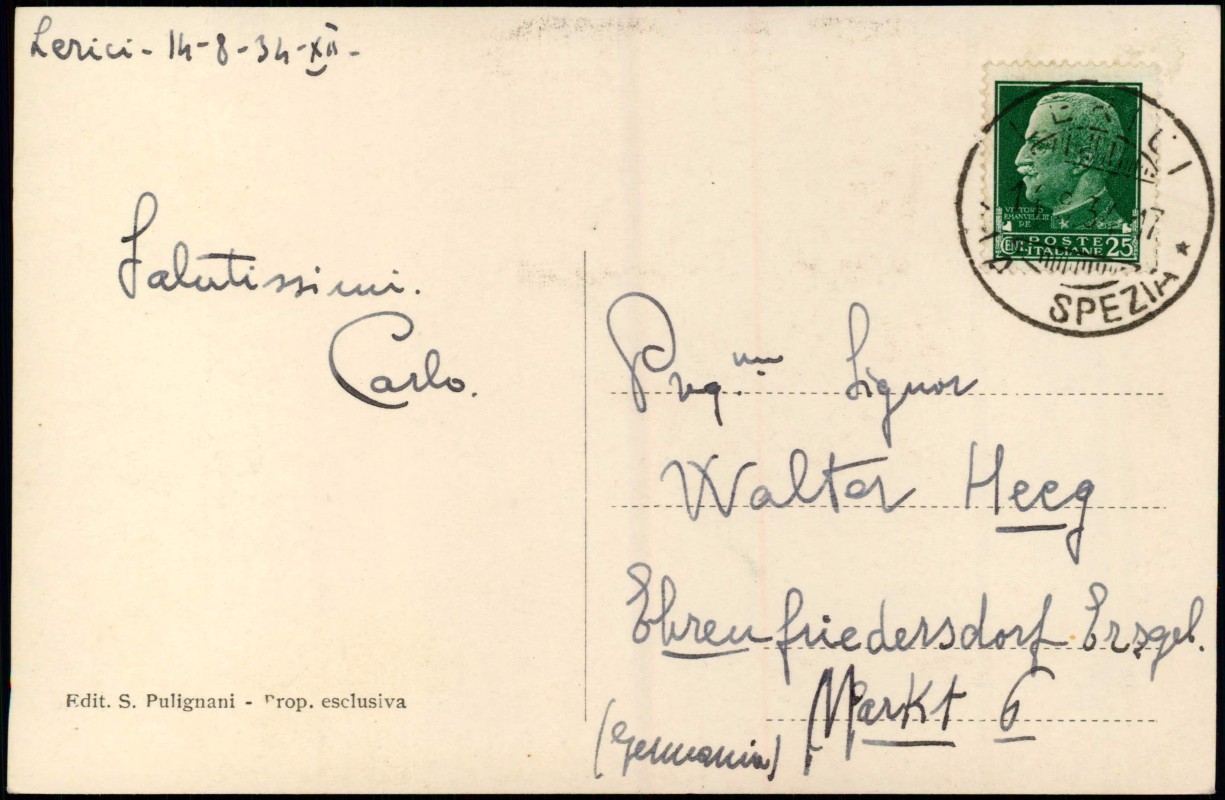 Lerici - 14-8-34-XII-
Salutissimi.
Carlo.
VITTORIO
EMANUELE III
RE
POSTE
CEN. ITALIANE 25
LERICI
14.8.34.17
SPEZIA *
Preg.mo Signor
Walter Heeg
Ehrenfriedersdorf Erzgeb.
Markt 6
(Germania)
Edit. S. Pulignani - Prop. esclusiva